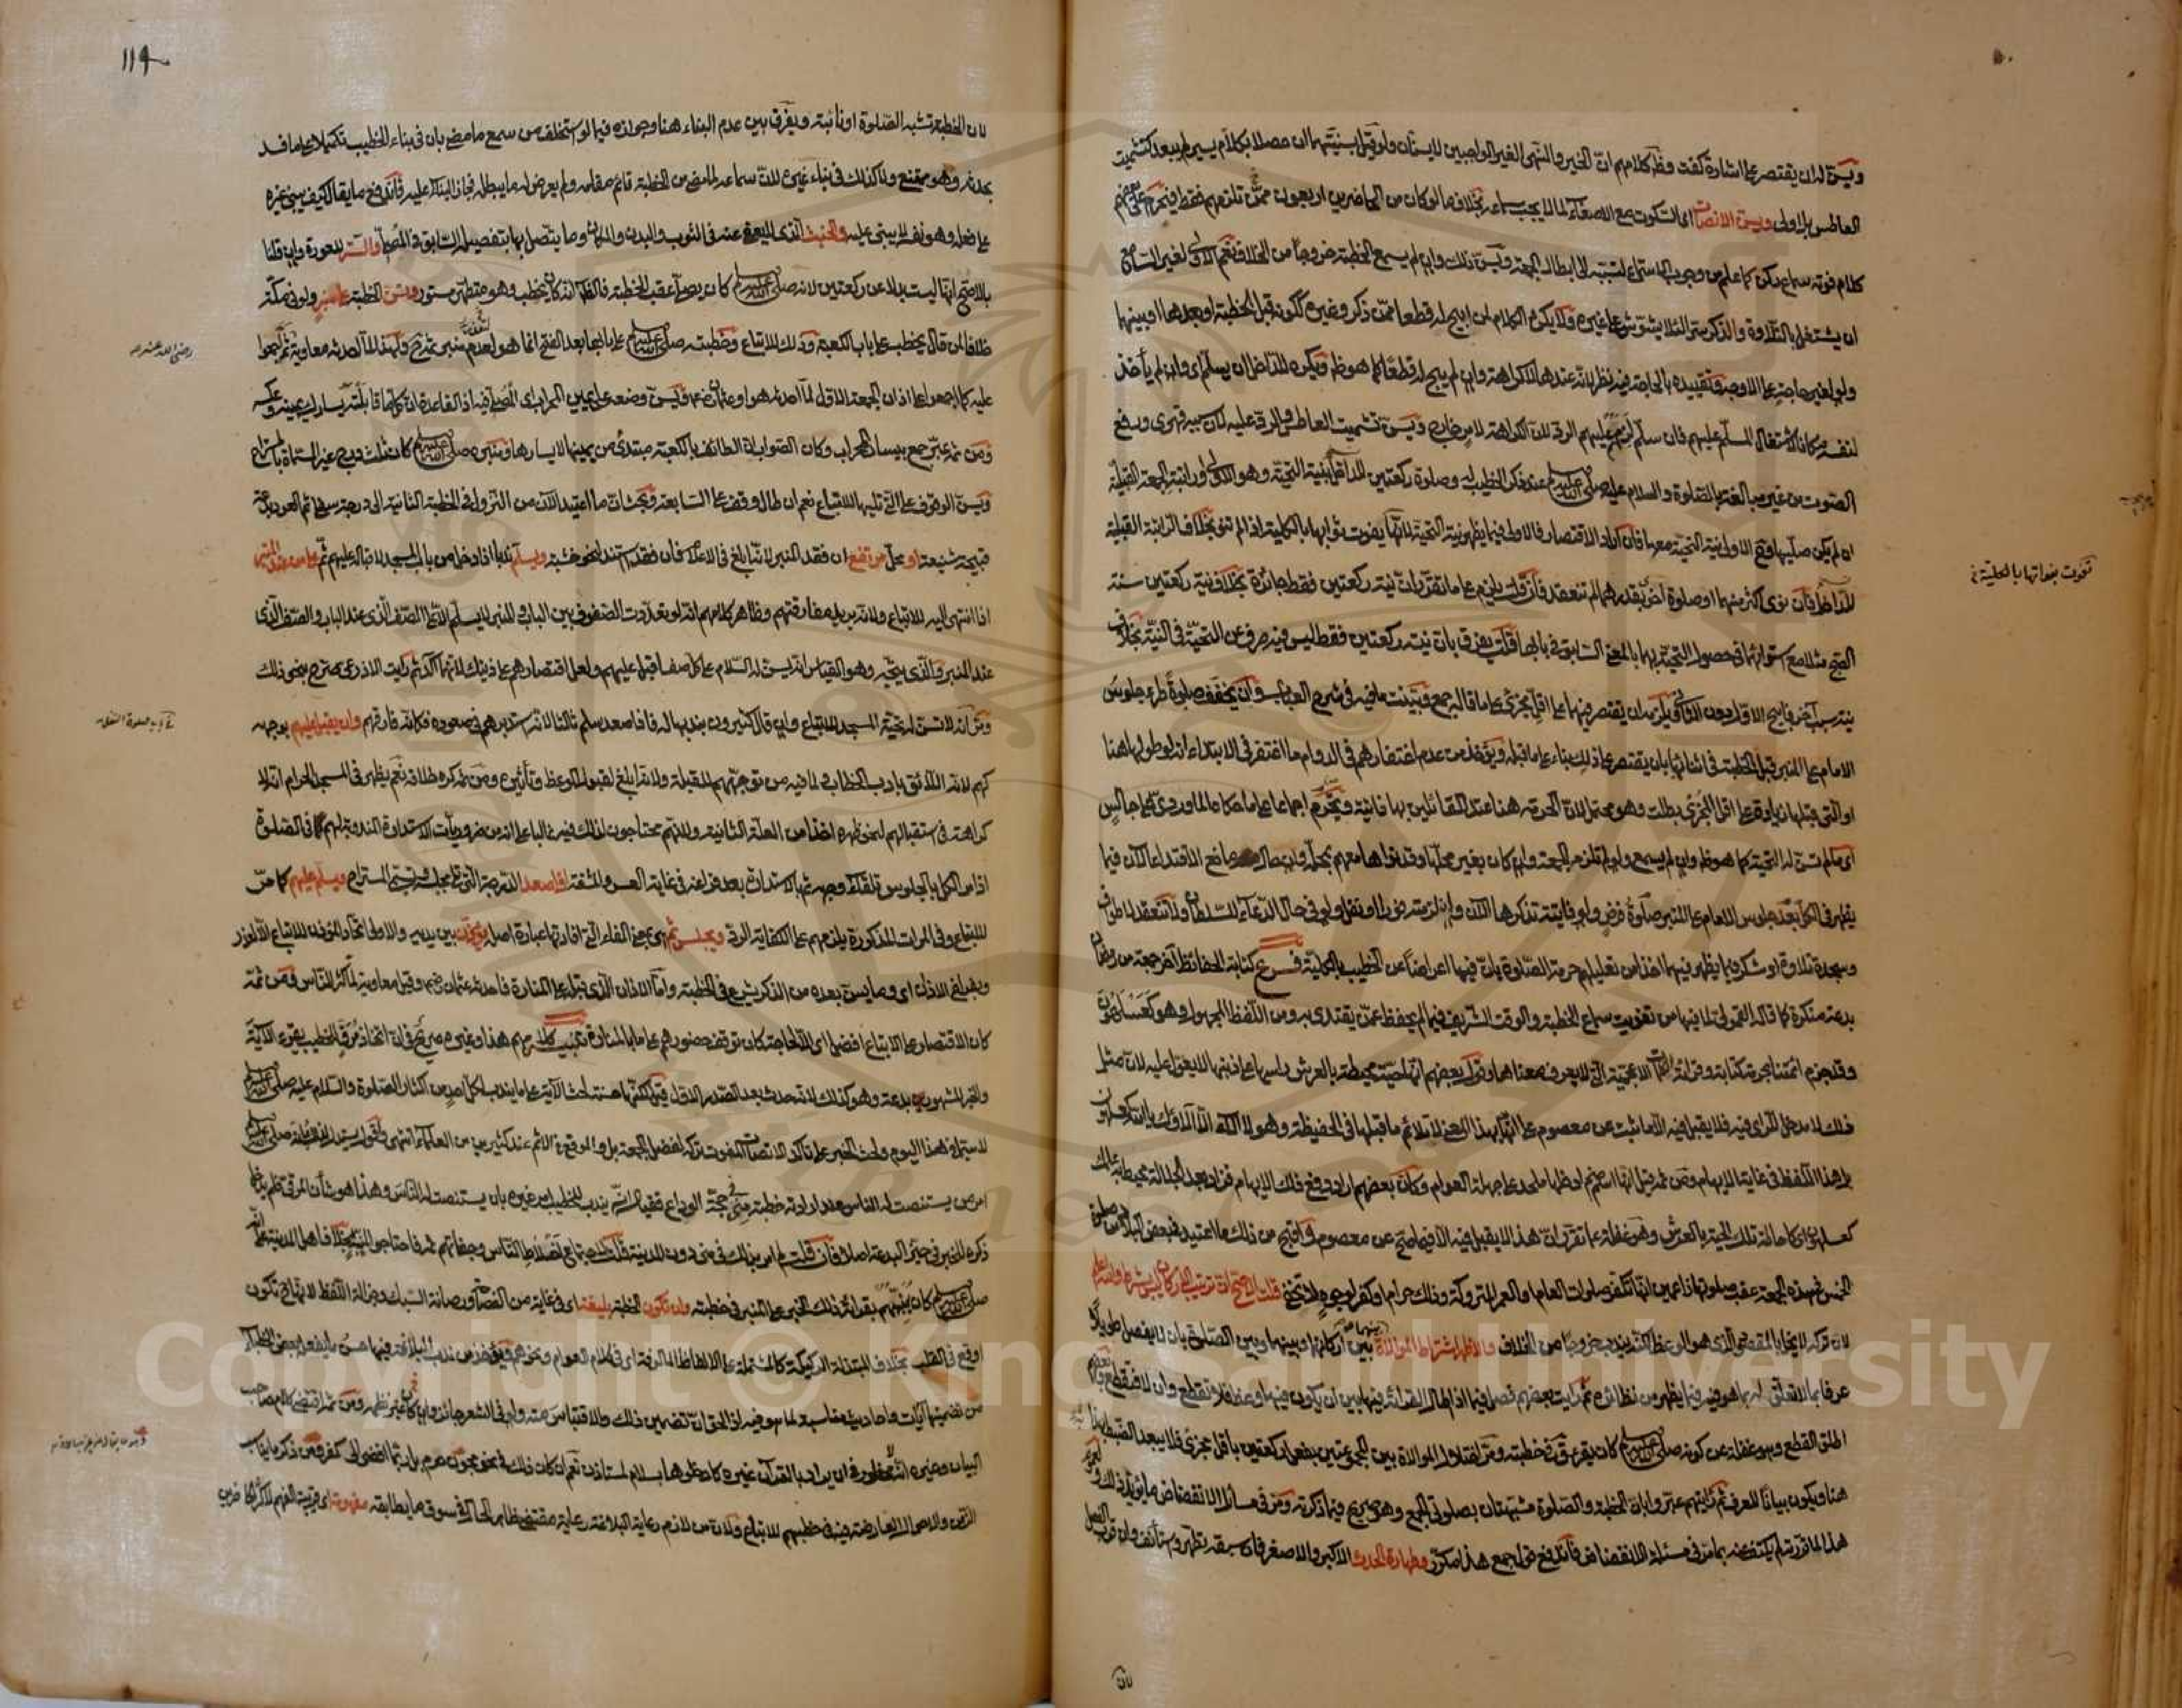 ويسن له ان يقتصر على اشارة كفت وظاهر كلامهم ان الخير والنهى الغير الواجبين لا يسنان ولو قيل بسنيتهما ان حصلا بكلام يسير لم يبعد كتشميت
العاطس بل اولى ويسن الانصات اى السكوت مع الاصغاء لما لا يجب سماعه بخلاف ما لو كان من الحاضرين اربعون ممن تلزمهم فقط فيحرم على بعضهم
كلام فوته سماع ركن كما علم من وجوب الاستماع لتسببه الى ابطال الجمعة ويسن ذلك وان لم يسمع الخطبة خروجا من الخلاف نعم الاولى لغير السامع
ان يشتغل بالتلاوة والذكر سرا لئلا يشوش على غيره ولا يكره الكلام لمن ابيح له قطعا ممن ذكر وغيره ككونه قبل الخطبة او بعدها او بينهما
ولو لغير حاجة على الاوجه وتقييده بالحاجة فيه نظر لانه عندها لا كراهة وان لم يبح له قطعا كما هو ظاهر ويكره للداخل ان يسلم اى وان لم يأخذ
لنفسه مكانا لاشتغال المسلم عليهم فان سلم لزمهم عليهم الرد لان الكراهة لامر خارج ويسن تشميت العاطس والرد عليه لان سببه قهرى ورفع
الصوت من غير مبالغة بالصلوة والسلام عليه صلى الله عليه وسلم عند ذكر الخطيب له وصلوة ركعتين للداخل بنية التحية وهو الاولى او راتبة الجمعة القبلية
ان لم يكن صلاها وح الاولى نية التحية معها فان اراد الاقتصار فالاولى فيما يظهر نية التحية لانها يفوت ثوابها بالكلية اذا لم تنو بخلاف الراتبة القبلية
للداخل فان نوى اكثر منهما او صلوة اخرى بقدرهما لم تنعقد فان قلت يلزم على ما تقرر ان نية ركعتين فقط جائزة بخلاف نية ركعتين سنة
الصبح مثلا مع استوائهما فى حصول التحية بهما بالمعنى السابق فى بابها قلت يفرق بان نية ركعتين فقط ليس فيه صرف عن التحية فى النية بخلاف
نية سبب آخر فابيح الاول دون الثانى ويلزمه ان يقتصر فيهما على اقل مجزئ على ما قاله جمع وبينت ما فيه فى شرح العباب وان يخفف صلوة طرأ جلوس
الامام على المنبر قبل الخطبة فى اثنائها بان يقتصر على ذلك بناء على ما قبله ويؤخذ من عدم اغتفارهم فى الدوام ما اغتفر فى الابتداء انه لو طولها هنا
او التى قبلها زيادة على اقل المجزئ بطلت وهو محتمل لان الحرمة هنا عند القائلين بها ذاتية ويحرم اجماعا على ما حكاه الماوردى على جالس
اى من لم تسن له التحية كما هو ظاهر وان لم يسمع ولو لم تلزمه الجمعة وان كان بغير محلها وقد نواها معهم بمحله وان حال مانع الاقتداء الآن فيما
يظهر فى الكل بعد جلوس الامام على المنبر صلوة فرض ولو فايتة تذكرها الآن وان لزمته فورا او نفل ولو فى حال الدعاء للسلطان ولا تنعقد لا طواف
وسجدة تلاوة او شكر فيما يظهر فيهما اخذا من تعليلهم حرمة الصلوة بان فيها اعراضا عن الخطيب بالكلية فرع كتابة الحفائظ آخر جمعة من رمضان
بدعة منكرة كما قاله القمولى لما فيها من تفويت سماع الخطبة والوقت الشريف فيما لم يحفظ عمن يقتدى به ومن اللفظ المجهول وهو كعسلهون
وقد جزم ائمتنا بحرمة كتابة وقراءة الكلمات الاعجمية التى لا يعرف معناها وقول بعضهم انها حية محيطة بالعرش راسها على ذنبها لا يعول عليه لان مثل
ذلك لا مدخل للراى فيه فلا يقبل فيه الا ما ثبت عن معصوم على انها بهذا المعنى لا تلائم ما قبلها فى الحفيظة وهو لا آلاء الا آلاؤك يا الله كعسلهون
بل هذا اللفظ فى غاية الابهام ومن ثم قيل انها اسم صنم ادخلها ملحد على جهلة العوام وكان بعضهم اراد دفع ذلك الابهام فزاد بعد الجلالة محيط به علمك
كعسلهون اى كاحاطة تلك الحية بالعرش وهو غفلة عما تقرر ان هذا لا يقبل فيه الا ما صح عن معصوم واقبح من ذلك ما اعتيد فى بعض البلاد من صلوة
الخمس فى هذه الجمعة عقب صلوتها زاعمين انها تكفر صلوات العام او العمر المتروكة وذلك حرام او كفر لوجوه لا تخفى قلت الاصح ان ترتيب الاركان ليس بشرط والله اعلم
لان تركه لا يخل بالمقصود الذى هو الوعظ لكنه يندب خروجا من الخلاف والاظهر اشتراط الموالاة بين اركانهما وبينهما وبين الصلوة بان لا يفصل طويلا
عرفا بما لا تعلق له بما هو فيه فيما يظهر من نظائره ثم رأيت بعضهم فصل فيما اذا طال القراءة فيها بين ان يكون فيها وعظ فلا تقطع وان لا فتقطع
اطلق القطع وهو غفلة عن كونه صلى الله عليه وسلم كان يقرء ق فى خطبته ومر اختلال الموالاة بين المجموعتين بفعل ركعتين باقل مجزئ فلا يبعد الضبط بهذا
هنا ويكون بيانا للعرف ثم رأيتهم عبروا بان الخطبة والصلوة مشبهتان بصلوتى الجمع وهو صريح فيما ذكرته ومر فى مسائل الانفضاض ما يؤيد ذلك
هذا لما قررته لم يكتف عنه بما مر فى مسئلة الانفضاض فاندفع قول جمع هذا مكرر وطهارة الحدث الاكبر والاصغر فان سبقه تطهر واستأنف وان قرب الفصل
تفوت بفواتها بالكلية
لان
١١٤
لان الخطبة تشبه الصلوة او نائبة ويفرق بين عدم البناء هنا وجوازه فيما لو استخلف من سمع ما مضى بان فى بناء الخطيب تكميلا على ما فسد
بحدثه وهو ممتنع ولا كذلك فى بناء غيره لان سماعه لما مضى من الخطبة قائم مقامه ولم يعرض له ما يبطله فجاز البناء عليه فاندفع ما يقال كيف يبنى غيره
على فعله وهو نفسه لا يبنى عليه والخبث الذى لا يعفى عنه فى الثوب والبدن والمكان وما يتصل بها بتفصيله السابق فى المصلى والستر للعورة وان قلنا
بالاصح انها ليست بدلا عن ركعتين لانه صلى الله عليه وسلم كان يصلى عقب الخطبة فالظاهر انه كان يخطب وهو متطهر مستور وتسن الخطبة على منبر ولو فى مكة
خلافا لمن قال يخطب على باب الكعبة وذلك للاتباع وخطبته صلى الله عليه وسلم على بابها بعد الفتح انما هو لعدم منبر ثم ح ولهذا لما احدثه معاوية ثم اجمعوا
عليه كما اجمعوا على اذان الجمعة الاول لما احدثه هو او عثمان رضى الله عنهما ويسن وضعه على يمين المحراب اى المصلى فيه اذ القاعدة ان كل ما قابلته يسارك يمينه وعكسه
ومن ثم عبر جمع بيسار المحراب وكان الصواب ان الطائف بالكعبة مبتدئ من يمينها لا يسارها ومنبره صلى الله عليه وسلم كان ثلث درج غير المسماة بالمستراح
ويسن الوقوف على التى تليها للاتباع نعم ان طال وقف على السابعة وبحث ان ما اعتيد الآن من النزول فى الخطبة الثانية الى درجة سفلى ثم العود بدعة
قبيحة شنيعة او محل مرتفع ان فقد المنبر لانه ابلغ فى الاعلام فان فقد استند لنحو خشبة ويسلم ندبا اذا دخل من باب المسجد لاقباله عليهم ثم على من عند المنبر
اذا انتهى اليه للاتباع ولانه يريد مفارقتهم وظاهر كلامهم انه لو تعددت الصفوف بين الباب والمنبر لا يسلم الا على الصف الذى عند الباب والصف الذى
عند المنبر والذى يتجه وهو القياس انه يسن له السلام على كل صف اقبل عليهم ولعل اقتصارهم على ذينك لانهما آكد ثم رأيت الاذرعى صرح بنحو ذلك
ومر انه لا تسن له تحية المسجد للاتباع وان قال كثيرون بندبها له فاذا صعد سلم ثالثا لانه استدبرهم فى صعوده فكانه فارقهم وان يقبل عليهم بوجهه
كهم لانه اللائق بادب الخطاب ولما فيه من توجههم للقبلة ولانه ابلغ لقبول الوعظ وتأثيره ومن ثم كره خلافه نعم يظهر فى المسجد الحرام انه لا
كراهة فى استقبالهم لنحو ظهره اخذا من العلة الثانية ولانهم محتاجون لذلك فيه غالبا على انه من ضروريات الاستدارة المندوبة لهم فى الصلوة
اذ امر الكل بالجلوس تلقاء وجهه ثم بالاستدارة بعد فراغه فى غاية العسر والمشقة اذا صعد الدرجة التى تلى مجلسه وتسمى المستراح ويسلم عليهم كما مر
للاتباع وفى المرات المذكورة يلزمهم على الكفاية الرد ويجلس ثم هى بمعنى الفاء التى افادتها عبارة اصله يؤذن بين يديه والاولى اتحاد المؤذن للاتباع الا لعذر
وبفراغ الاذان اى وما يسن بعده من الذكر يشرع فى الخطبة واما الاذان الذى قبله على المنارة فاحدثه عثمان رضى الله عنه وقيل معاوية لما كثر الناس ومن ثمة
كان الاقتصار على الاتباع افضل اى الا لحاجة كان توقف حضورهم على ما بالمناير تنبيه كلامهم هذا وغيره صريح فى ان اتخاذ مرق للخطيب يقرء الآية
والخبر المشهورين بدعة وهو كذلك لانه حدث بعد الصدر الاول قيل لكنها حسنة لحث الآية على ما يندب لكل احد من اكثار الصلوة والسلام عليه صلى الله عليه وسلم
لا سيما فى هذا اليوم ولحث الخبر على تأكد الانصات المفوت تركه لفضل الجمعة بل والموقع فى الاثم عند كثيرين من العلماء انتهى واقول يستدل لذلك بانه صلى الله عليه وسلم
امر من يستنصت له الناس عند ارادته خطبة منى فى حجة الوداع فقياسه انه يندب للخطيب امر غيره بان يستنصت له الناس وهذا هو شأن المرقى فلم يدخل
ذكره للخبر فى حيز البدعة اصلا فان قلت لم امر بذلك فى منى دون المدينة قلت لاجتماع اخلاط الناس وجفاتهم ثم فاحتاجوا لمنبه بخلاف اهل المدينة على انه
صلى الله عليه وسلم كان ينبههم بقراءته ذلك الخبر على المنبر فى خطبته وان تكون الخطبة بليغة اى فى غاية من الفصاحة ورصانة السبك وجزالة اللفظ لانها ح تكون
اوقع فى القلب بخلاف المبتذلة الركيكة كالمشتملة على الالفاظ المالوفة اى فى كلام العوام ونحوهم ويؤخذ من ندب البلاغة فيها حسن ما يفعله بعض الخطباء
من تضمينها آيات واحاديث مناسبة لما هو فيه اذ الحق ان تضمين ذلك والاقتباس منه ولو فى الشعر جائز وان غير نظمه ومن ثم اقتضى كلام صاحب
البيان وغيره انه لا محظور فى ان يراد بالقرآن غيره كادخلوها بسلام لمستاذن نعم ان كان ذلك فى نحو مجون حرم بل ربما افضى الى كفر ومن ذكر ما يناسب
الزمن والاحوال العارضة فيه فى خطبهم للاتباع ولان من لازم رعاية البلاغة رعاية مقتضى ظاهر الحال فى سوق ما يطابقه مفهومة اى قريبة الفهم لاكثر الحاضرين
رضى الله عنه